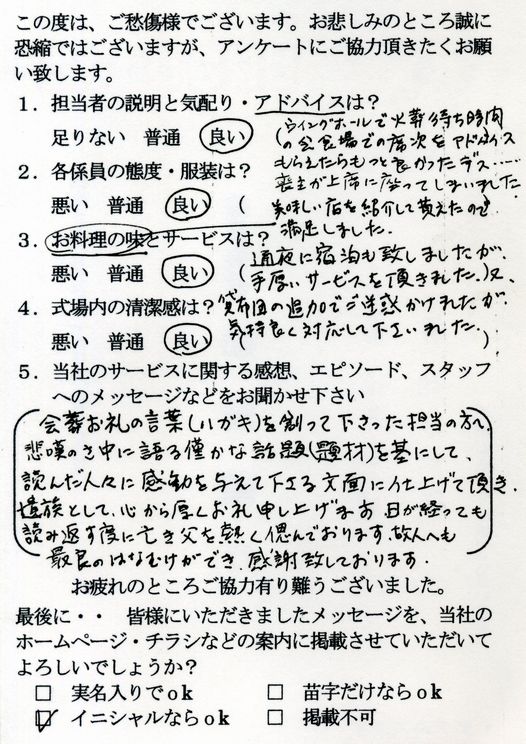 この度は、ご愁傷様でございます。お悲しみのところ誠に
恐縮ではございますが、アンケートにご協力頂きたくお願
い致します。
1．担当者の説明と気配り・アドバイスは？
足りない　普通　良い　(ウイングホールで火葬待ち時間
の会食場での席次をアドバイス
もらえたらもっと良かったデス……
喪主が上席に座ってしまいました
2．各係員の態度・服装は？
悪い　普通　良い　(美味しい店を紹介して貰えたので
満足しました。
3．お料理の味とサービスは？
悪い　普通　良い　(通夜に宿泊も致しましたが、
手厚いサービスを頂きました。)又、
4．式場内の清潔感は？貸布団の追加でご迷惑かけましたが
悪い　普通　良い　気持良く対応して下さいました。)
5．当社のサービスに関する感想、エピソード、スタッフ
へのメッセージなどをお聞かせ下さい
会葬お礼の言葉(ハガキ)を創って下さった担当の方へ、
悲嘆のさ中に語る僅かな話題(題材)を基にして、
読んだ人々に感動を与えて下さる文面に仕上げて頂き、
遺族として、心から厚くお礼申し上げます 日が経っても
読み返す度に亡き父を熱く偲んでおります。故人へも
最良のはなむけができ、感謝致しております。
お疲れのところご協力有り難うございました。
最後に・・　皆様にいただきましたメッセージを、当社の
ホームページ・チラシなどの案内に掲載させていただいて
よろしいでしょうか？
□　実名入りでｏｋ　□　苗字だけならｏｋ
☑　イニシャルならｏｋ　□　掲載不可